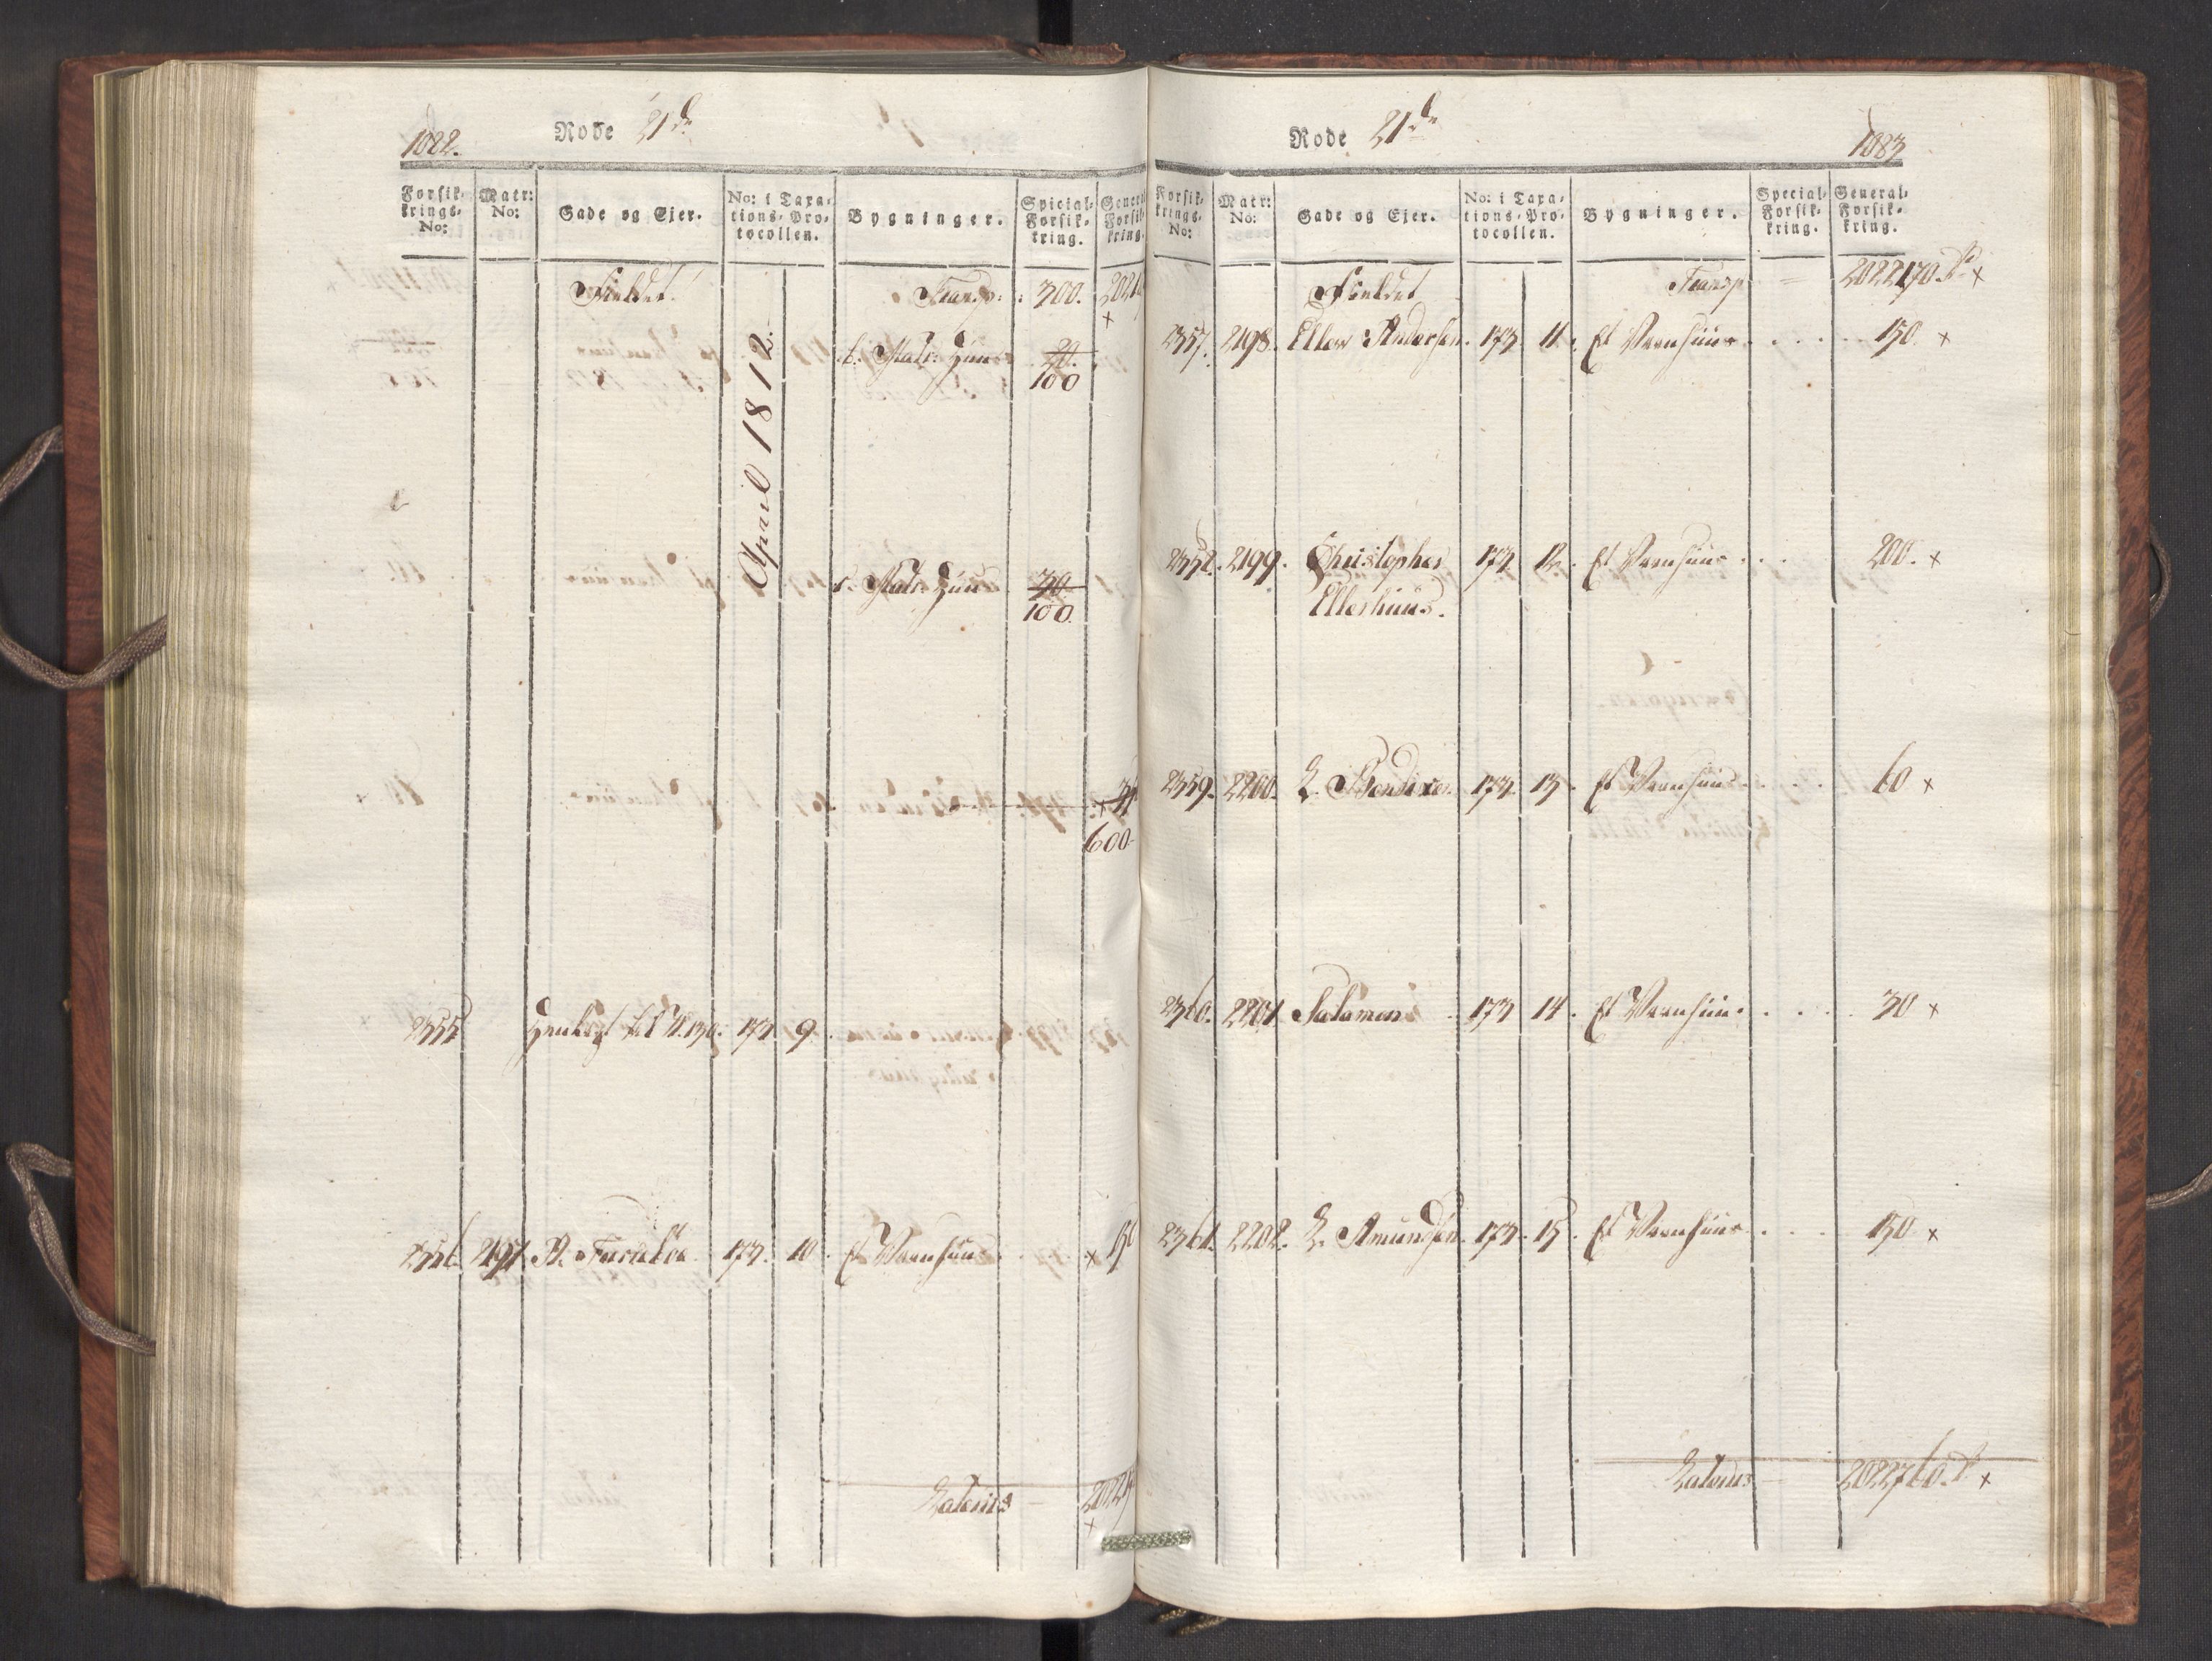 1082.
Rode 21de
Forsik-
krings-
No:
Matr:
No:
Gade og Ejer.
No: i Taxa-
tions-Pro-
tocollen.
Bygninger.
Special-
Forsik-
kring.
Fieldet.
Transp:
300.
×
April 1812.
20.
100
30.
100
600
2355
Henlagt til
173
9.
2356
2197
173.
10.
Et Vaanhuus
× 150
Lateris
×
Rode 21de
1083
Forsik-
krings-
No:
Matr:
No:
Gade og Ejer.
No: i Taxa-
tions-Pro-
tocollen.
Bygninger.
Special-
Forsik-
kring.
General-
Forsik-
kring.
Fieldet
Transp
2022170 ×
2357. 2198. Ellew Andersen. 173 11. Et Vaanhuus . . . . 150. ×
2358. 2199. Christopher 173 12. Et Vaanhuus . . . 200. ×
Ellerhuus.
2359. 2200. L. Bendixen. 173. 13. Et Vaanhuus . . . 60 ×
2360. 2201 Salamon 173 14. Et Vaanhuus . . . . 30 ×
2361. 2202. L. Amundsen. 173. 15. Et Vaanhuus . . . 150 ×
Lateris 2022760. ×